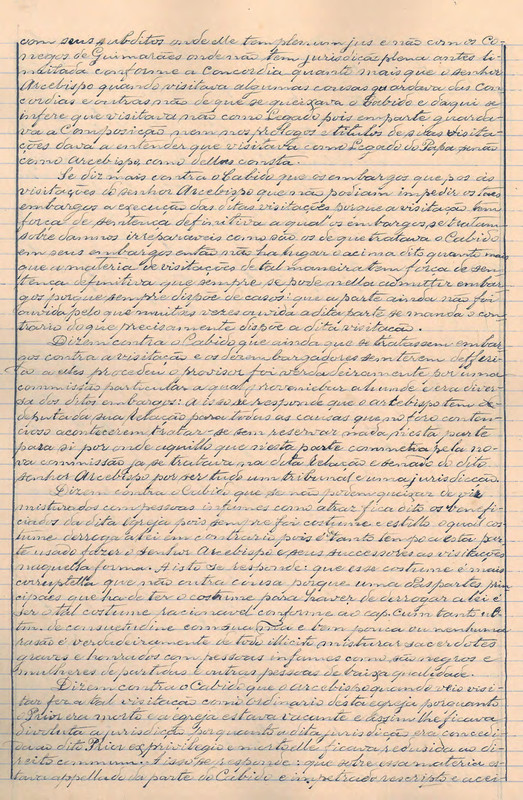 com seus subditos onde elle tem plenum jus e não com os Co-
negos de Guimarães onde não tem jurisdicção plena antes li-
mitada conforme a Concordia quanto mais que o senhor
Arcebispo quando visitava algumas cousas guardava das Con-
cordias e outras não de que se queixava o Cabido e daqui se
infere que visitava não como Legado pois em parte guarda-
va a Composição nem nos prologos e titulos de suas visita-
ções dava a entender que visitava como Legado do Papa senão
como Arcebispo, como dellas consta.
Se diz mais contra o Cabido que os embargos que pos ás
visitações do senhor Arcebispo que não podiam impedir os taes
embargos a execução das ditas visitações porque a visitação tem
força de sentença definitiva a qual os embargos, se tratam
sobre damnos irreparaveis como são os de que tratava o Cabido
em seus embargos então não ha lugar o acima dito quanto mais
que a materia de visitações de tal maneira tem força de sen-
tença definitiva que sempre se pode nella admitter embar-
gos porque sempre dispõe de casos: que a parte ainda não foi
ouvida pelo que muitas vezes ouvida a dita parte se manda o con-
trario do que precisamente dispõe a dita visitação.
Dizem contra o Cabido que ainda que se tratassem embar-
gos contra a visitação e os desembargadores sem terem defferi-
do a elles procedeu o provisor foi verdadeiramente por uma
commissão particular a qual provem aliunde e era diver-
sa dos ditos embargos: A isso se responde que o arcebispo tem de-
putada sua Relação para todas as causas que no foro conten-
cioso acontecerem tratar-se sem reservar nada nesta parte
para si por onde aquillo que nesta parte commetia pela no-
va commissão ja se tratava na dita relação e senado do dito
senhor Arcebispo por ser tudo um tribunal e uma jurisdicção
Dizem contra o Cabido que se não podem queixar de vir
misturados com pessoas infames como atraz fica dito os benefi-
ciados da dita Egreja pois sempre foi costume e estilo o qual cos-
tume derroga a lei em contrario, pois de tanto tempo a esta par-
te usado fazer o senhor Arcebispo e seus successores as visitações
naquella forma. A isto se responde: que esse costume é mais
corruptella que não outra cousa porque uma das partes prin-
cipaes que ha de ter o costume para haver de derrogar a lei é
ser o tal costume racionavel conforme ao cap. Cum tanto ul-
tim. de consuetudine com sua e bem pouca ou nenhuma
rasão é verdadeiramente de todo illicito, misturar sacerdotes
graves e honrados com pessoas infames como são negros e
mulheres de partidas e outras pessoas de baixa qualidade.
Dizem contra o Cabido que o arcebispo quando veio visi-
tar fez a tal visitação como Ordinario desta egreja porquanto
o Prior era morto e a egreja estava vacante e assim lhe ficava
devoluta a jurisdicção porquanto a dita jurisdicção era concedi-
da ao dito Prior ex privilegio e morto elle ficava redusida ao di-
reito commum. A isso se responde: que sobre essa materia es-
tava appellado da parte do Cabido e impetrado rescripto e acei-